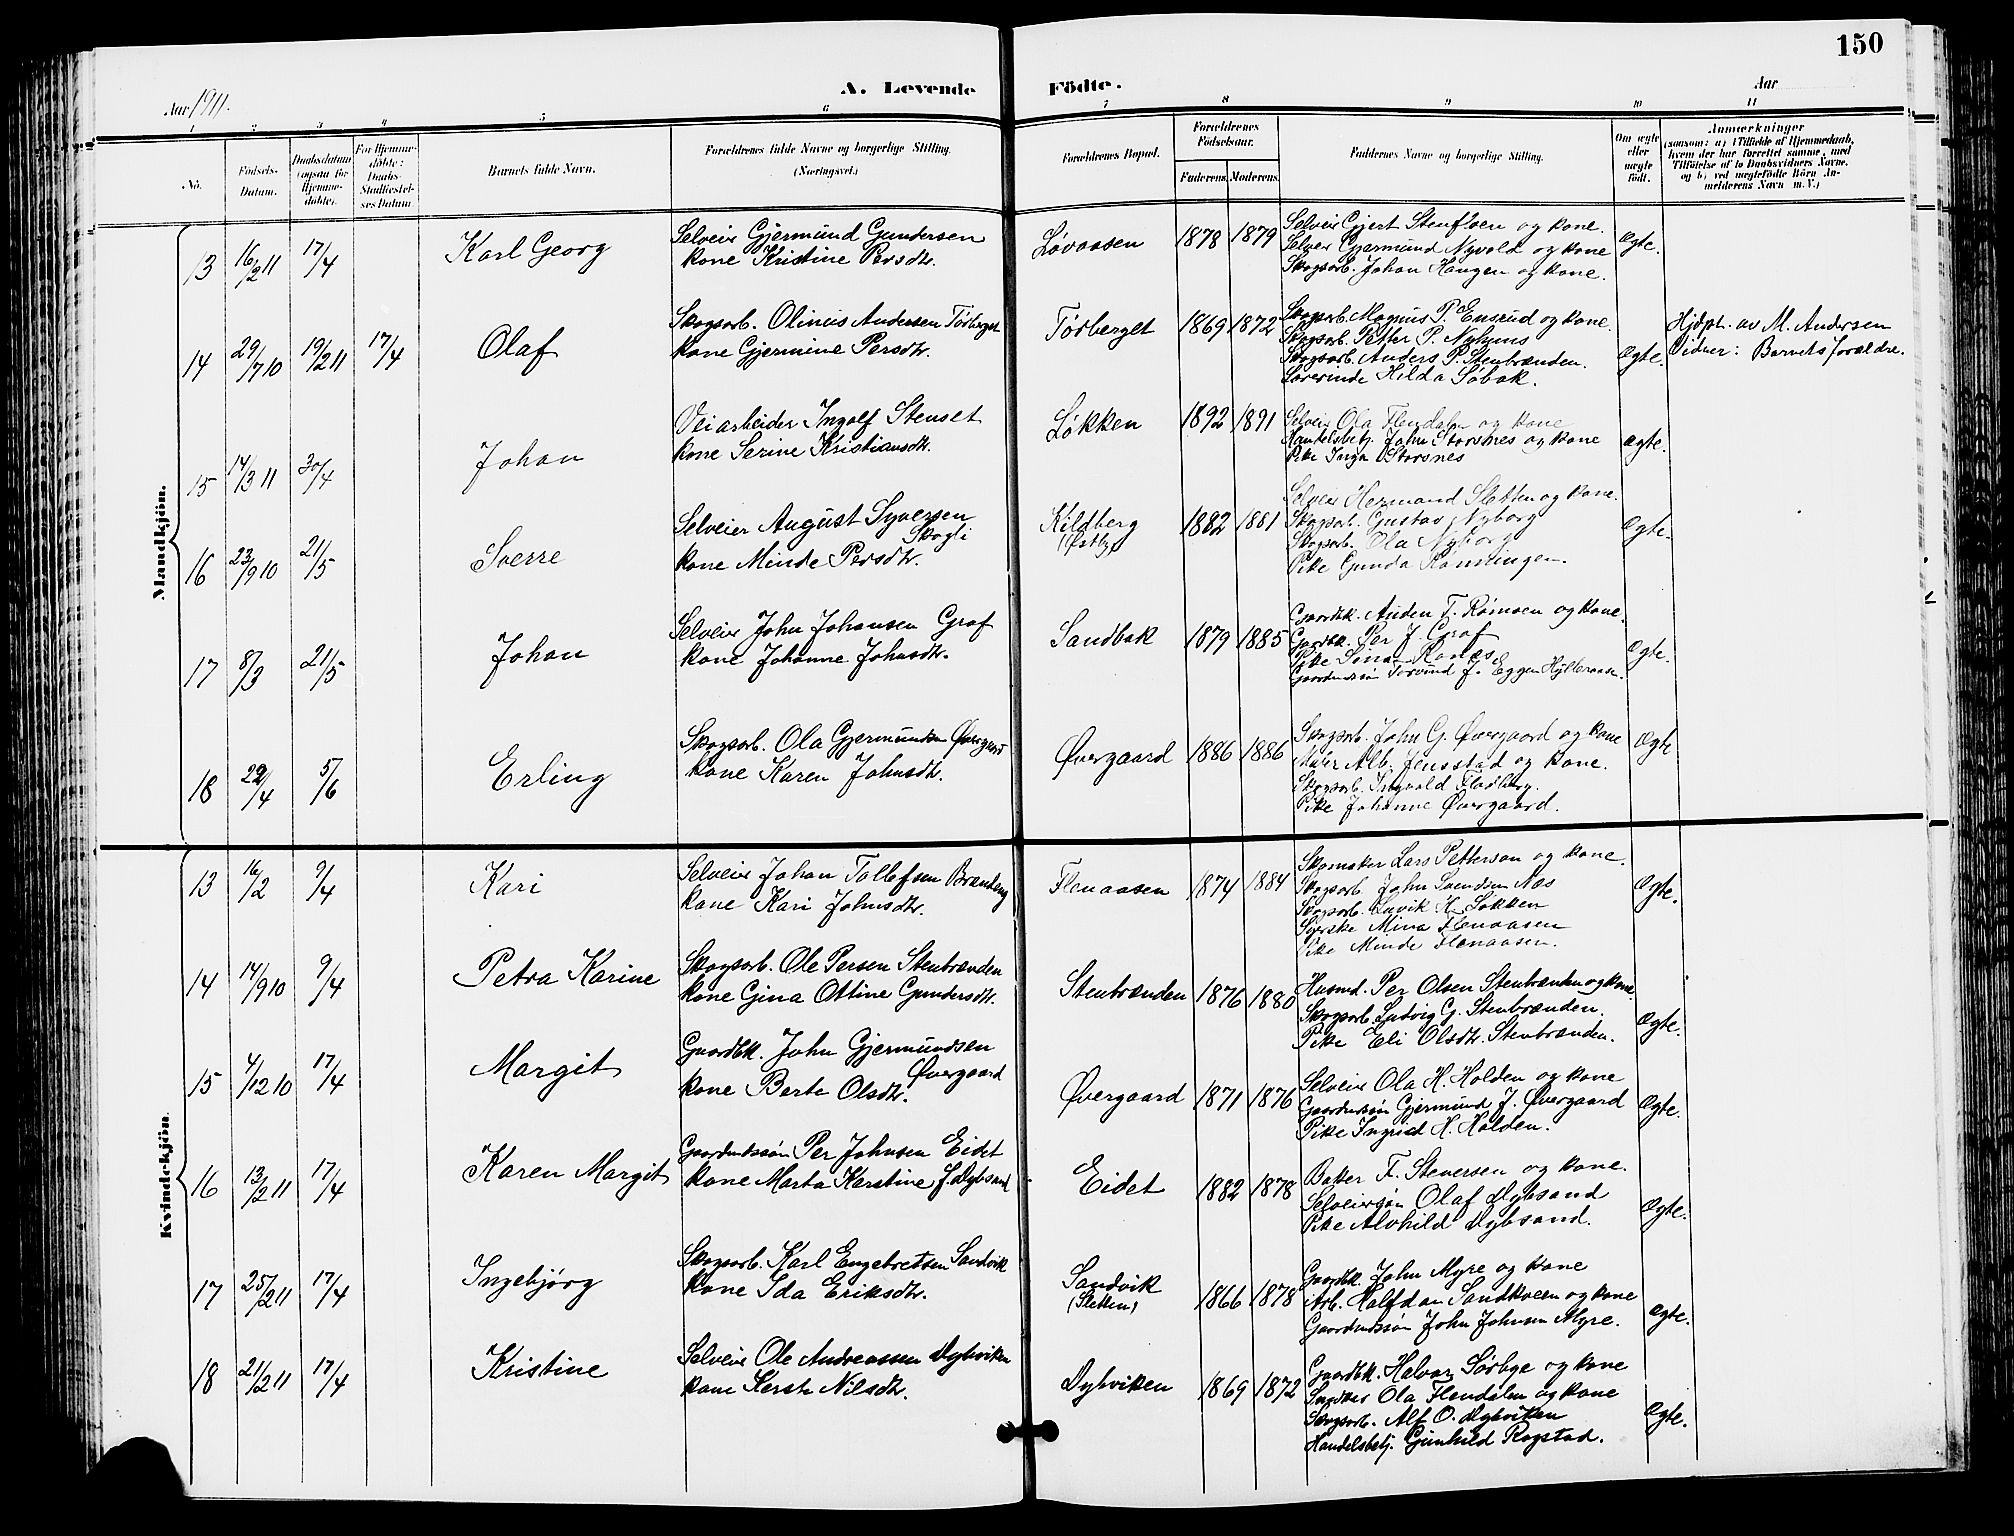 150
A. Levende Födte.
Aar 1911. Aar
1 2 3 4 5 6 7 8 9 10 11
No.
Födsels-Datum.
Daabsdatum (ogsaa for Hjemmedöbte).
For Hjemmedöbte: Daabs-Stadfæstelses Datum
Barnets fulde Navn.
Forældrenes fulde Navne og borgerlige Stilling. (Næringsvei.)
Forældrenes Bopæl.
Forældrenes Födselsaar.
Faderens. Moderens.
Faddernes Navne og borgerlige Stilling.
Om ægte eller uægte födt.
Anmærkninger (saasom: a) i Tilfælde af Hjemmedaab, hvem der har forrettet samme, med Tilföielse af to Daabsvidners Navne, og b) ved uægtefödte Börn Anmelderens Navn m. V.)
Mandkjön.
13 16/2 11 17/4 Karl Georg
Selveier Gjermund Gundersen
kone Kristine Persdtr.
Løvaasen 1878 1879
Selveier Gjert Stenfloen og kone.
Selveier Gjermund Nyvold og kone
Skogsarb. Johan Haugen og kone.
Ægte.
14 29/7 10 19/2 11 17/4 Olaf
Skogsarb. Olinus Andersen Törberget
kone Gjermine Persdtr.
Törberget 1869 1872
Skogsarb. Magnus P. Ensrud og kone.
Skogsarb. Petter P. Nyhuus
Skogsarb. Anders P. Stenbrænden.
Lærerinde Hilda Söbak.
Ægte.
Hjdøpt. av M. Andersen
Vidner: Barnets forældre.
15 14/3 11 30/4 Johan
Veiarbeider Ingolf Stenset
kone Serine Kristiansdtr.
Løkken 1892 1891
Selveier Ola Flendalen og kone
Handelsbetj. John Storsnes og kone
Pike Inga Storsnes
Ægte.
16 23/9 10 21/5 Sverre
Selveier August Syversen Skogli
kone Minde Persdtr.
Kildberg (Østby) 1882 1881
Selveier Hermand Sletten og kone.
Skogsarb. Gustav Nyborg
Skogsarb. Ola Nyborg
Pike Gunda Rønningen.
Ægte.
17 8/3 21/5 Johan
Selveier John Johansen Graf
kone Johanne Johnsdtr.
Sandbak 1879 1885
Gaardbk. Auden F. Römoen og kone.
Gaardbk. Per J. Graf
Pike Sina Ronæs
Gaardmandssøn Torvind J. Eggen Hylleraasen.
Ægte.
18 22/4 5/6 Erling
Skogsarb. Ola Gjermundsen Øvergaard
kone Karen Johnsdtr.
Øvergaard 1886 1886
Skogsarb. John G. Øvergaard og kone
Maler Alb. Jensstad og kone.
Skogsarb. Ingvald Flodberg.
Pike Johanne Øvergaard.
Ægte
Kvindekjön.
13 16/2 9/4 Kari
Selveier Johan Tollefsen Brændeng
kone Kari Johnsdtr.
Flenaasen 1874 1884
Skomaker Lars Petterson og kone.
Skogsarb. John Svendsen Næs
Skogsarb. Luvik H. Løkken
Syerske Mina Flenaasen
Pike Minde Flenaasen.
Ægte.
14 14/9 10 9/4 Petra Karine
Skogsarb. Ole Persen Stenbrænden
kone Gina Ottine Gundersdtr.
Stenbrænden 1876 1880
Husmd. Per Olsen Stenbrænden og kone.
Skogsarb. Ludvig G. Stenbrænden.
Pike Eli Olsdtr. Stenbrænden.
Ægte.
15 4/12 10 17/4 Margit
Gaardbk. John Gjermundsen Øvergaard
kone Berte Olsdtr.
Øvergaard 1871 1876
Selveier Ola H. Holden og kone
Gaardmandssøn Gjermund J. Øvergaard
Pike Ingrid H. Holden.
Ægte.
16 13/2 11 17/4 Karen Margit
Gaardmandssøn Per Johnsen Eidet
kone Marta Kerstine J. Dybsand
Eidet 1882 1878
Baker F. Steversen og kone.
Selveiersøn Olaf Dybsand
Pike Alvhild Dybsand.
Ægte.
17 25/2 11 17/4 Ingebjørg
Skogsarb. Karl Engebretsen Sandvik
kone Ida Eriksdtr.
Sandvik (Sletten) 1866 1878
Gaardbk. John Myre og kone
Arb. Halfdan Sandkveen og kone
Gaardmandssøn John Johnsen Myre.
Ægte.
18 21/2 11 17/4 Kristine
Selveier Ole Andreassen Dybviken
kone Kerste Nilsdtr.
Dybviken 1869 1872
Gaardbk. Halvor Sørhge og kone
Ola Flendalen og kone
Skogsarb. Alf O. Dybviken
Handelsbetj. Gunhild Rogstad.
Ægte.